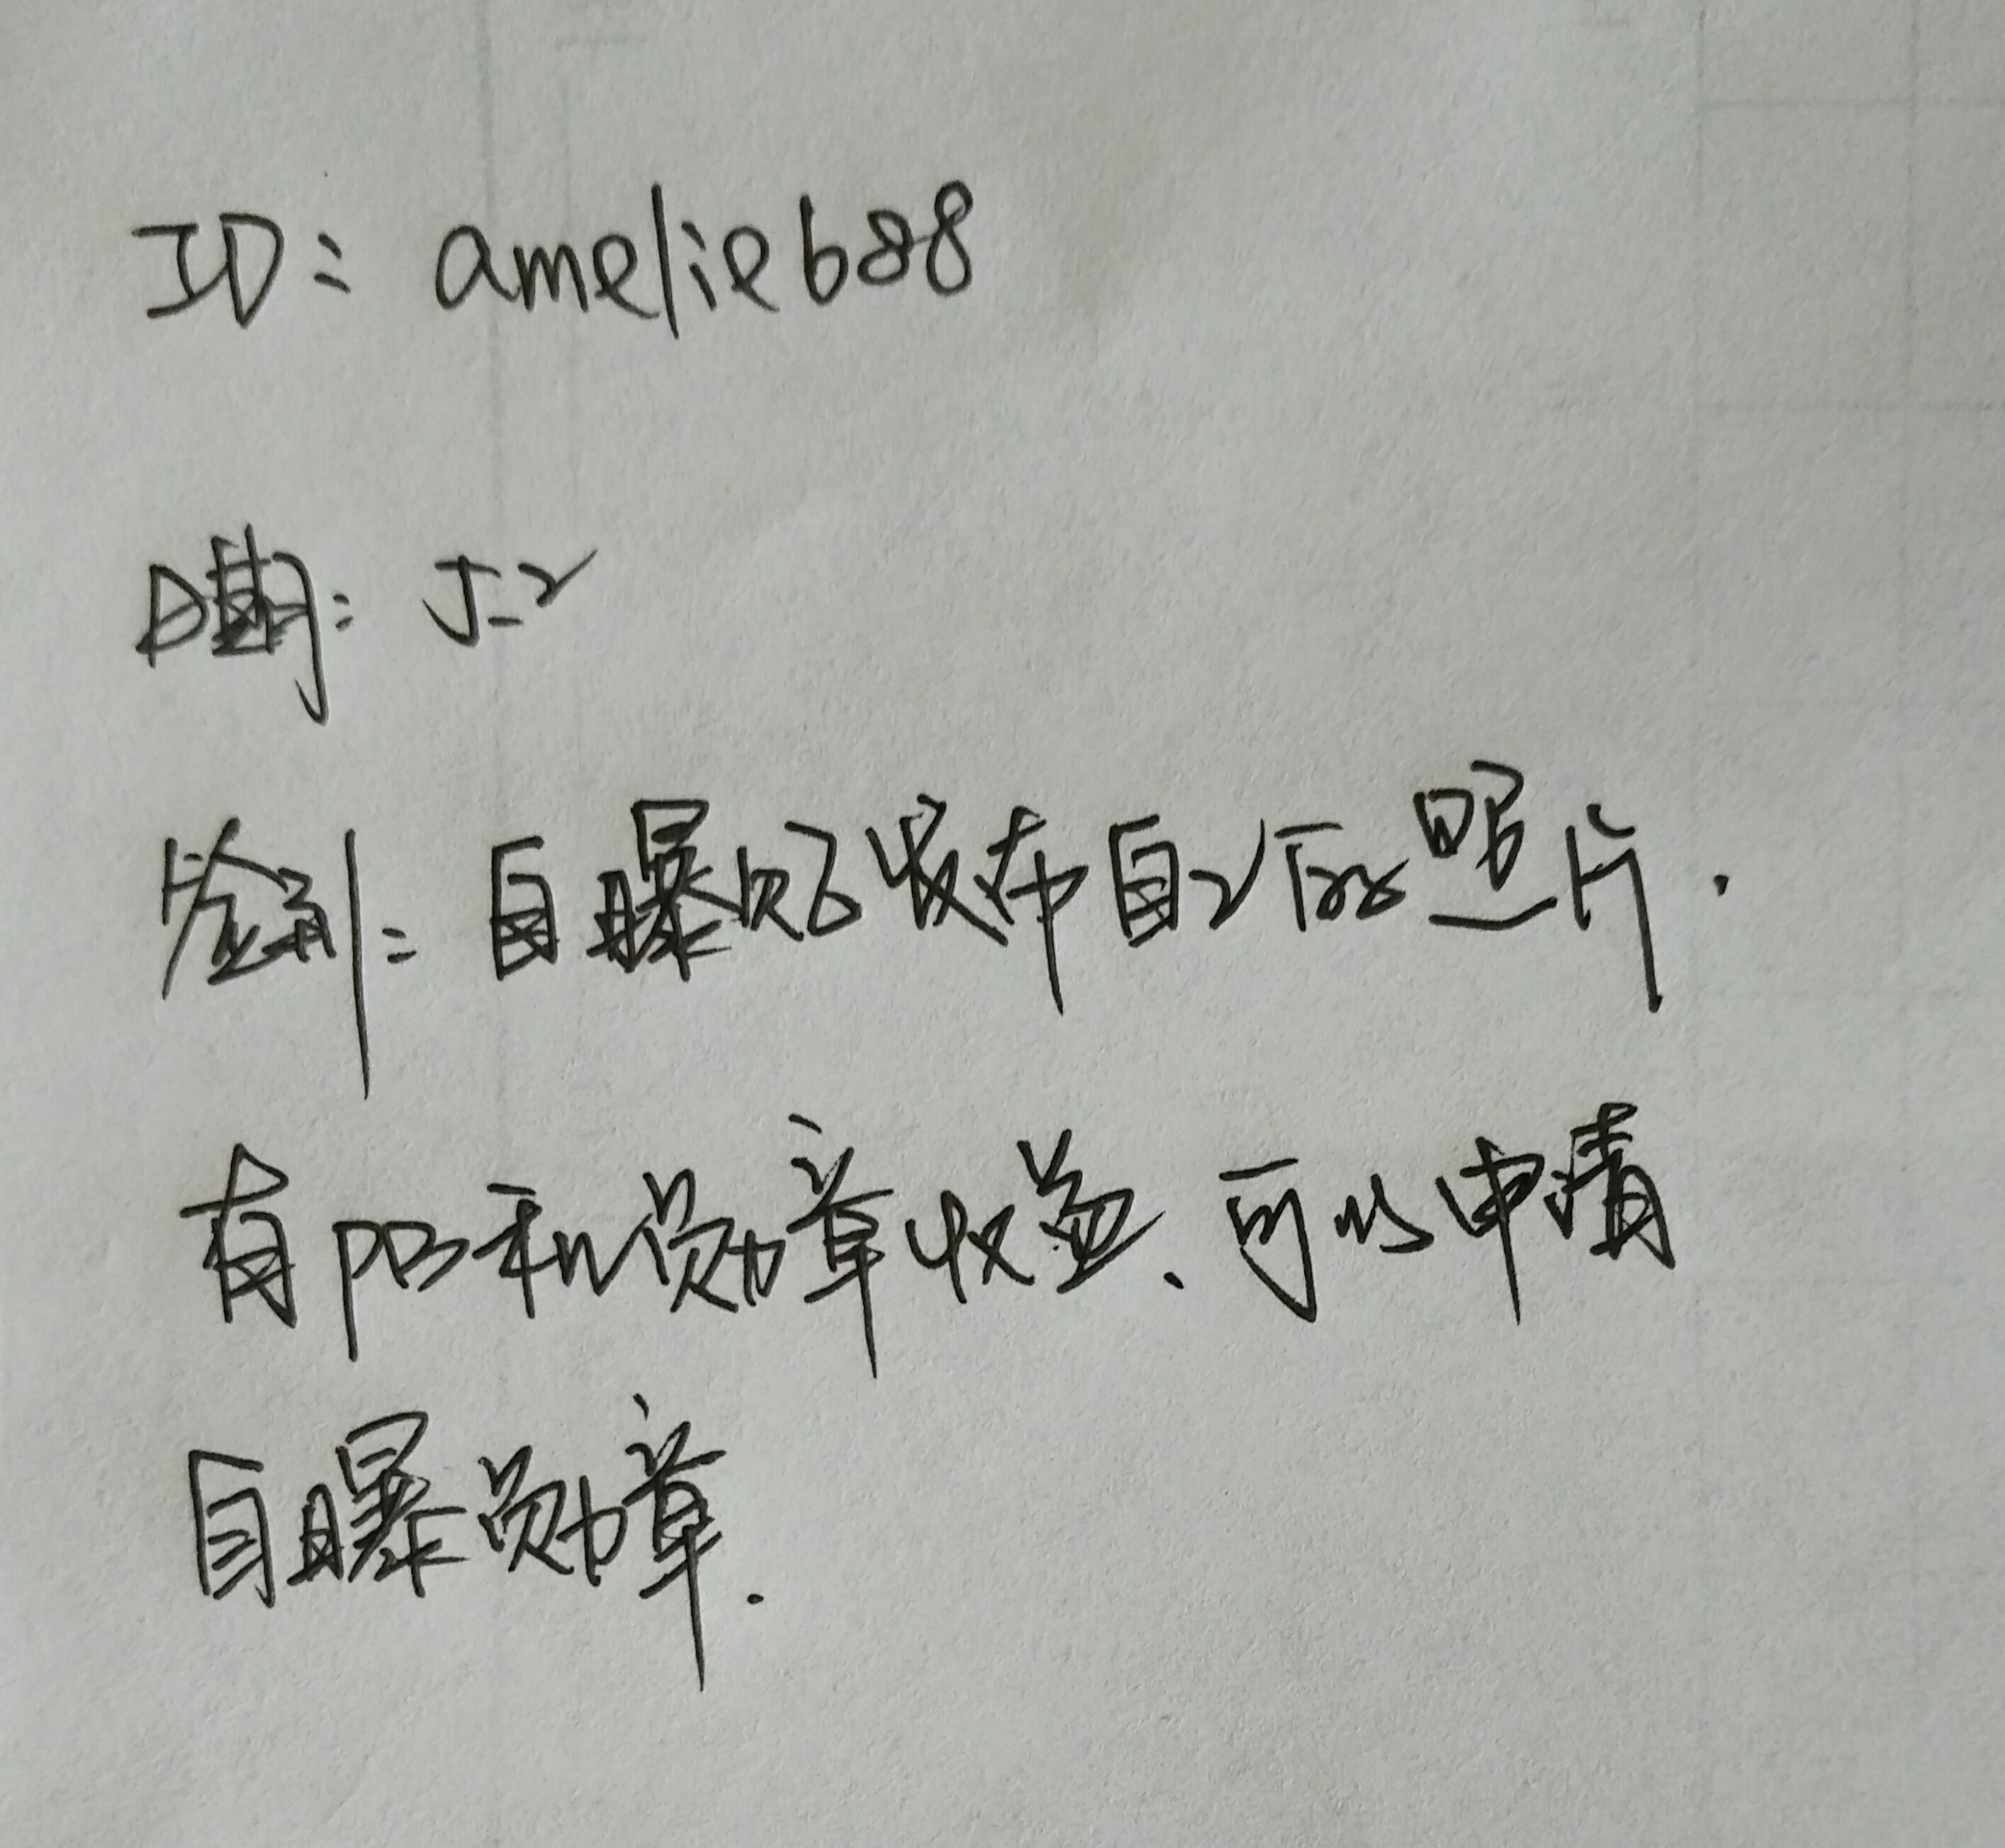 ID: amelie688
日期: 5.2
签到: 自曝贴只发布自己的照片.
有PB和勋章收益、可以申请
自曝勋章.